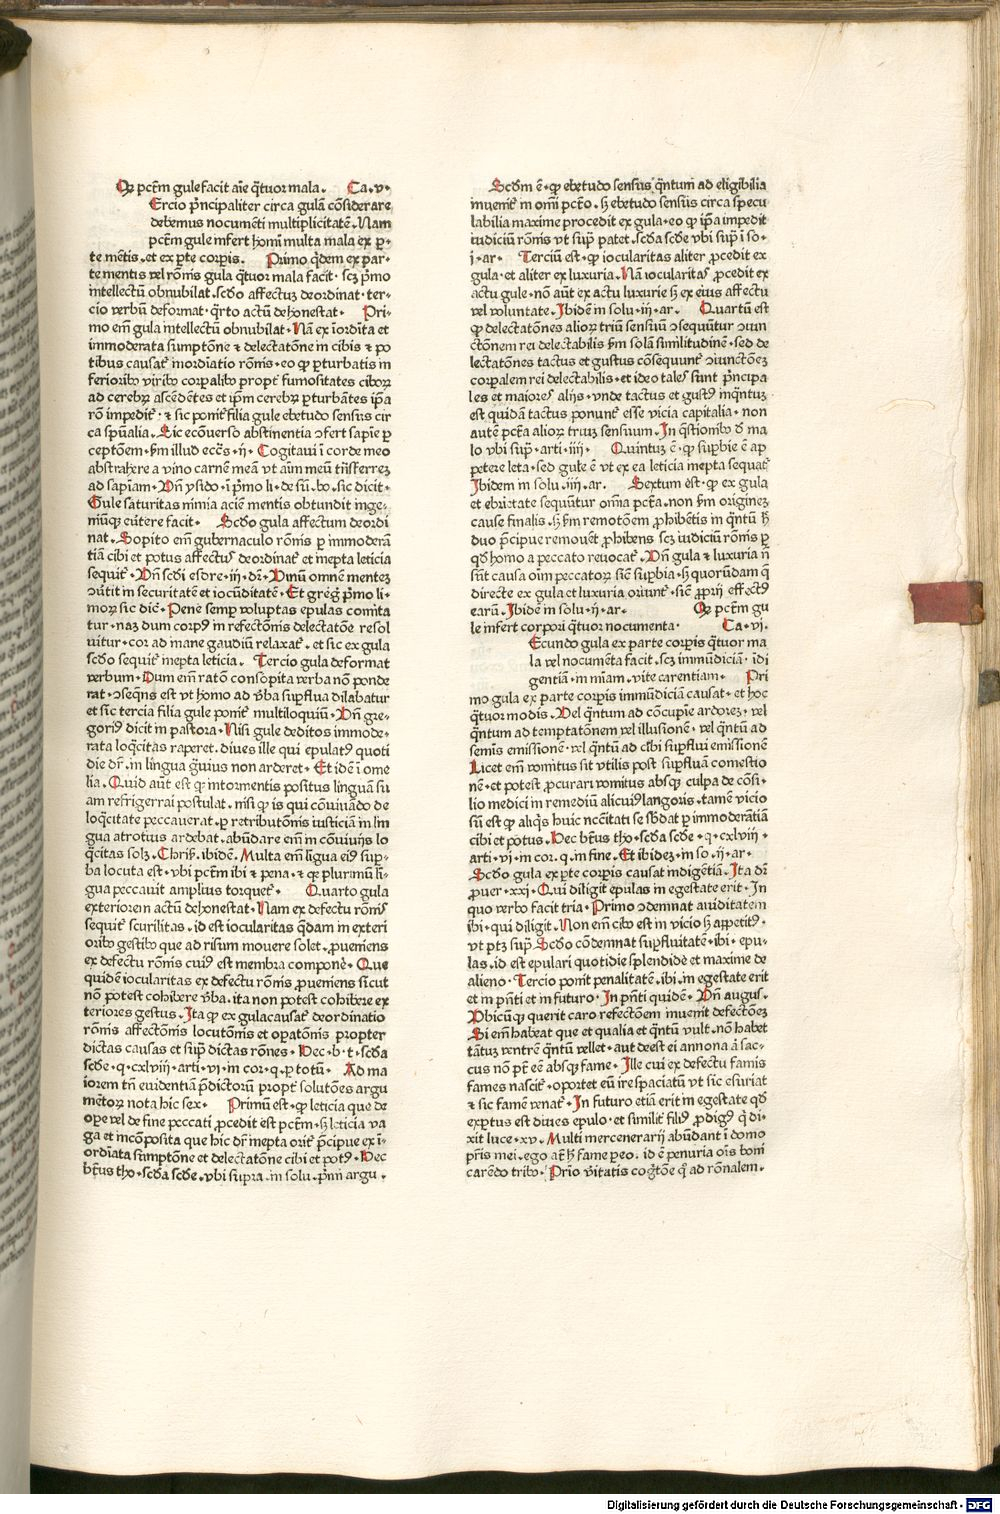 Qꝙ pctm̄ gule facit aīe q̄tuor mala. Ca.v.
Ercio pͥncipaliter circa gulā cōsiderare
debemus nocumēti multiplicitatē. Nam
pctm̄ gule infert homī multa mala ex p̱-
te mētis. et ex p̱te corp̱is. Primo qͥdem ex par-
te mentis vel rōnis gula qͣtuor mala facit. scꝫ pͥmo
intellectū obnubilat. scd̓o affectuꝫ deordinat. ter-
cio verbū deformat. qͣrto actū dehonestat. Pri-
mo em̄ gula intellectū obnubilat. Nā ex īordīta et
immoderata sumptōne ⁊ delectatōne in cibis ⁊ po
tibus causatͬ inordīatio rōnis. eo ꝙ p̱turbatis in
feriorib⁹ virib⁹ corpalib⁹ proptͬ fumositates ciboꝝ
ad cerebꝝ ascēdētes et ip̄m cerebꝝ p̱turbātes ip̄a
rō impeditͬ. ⁊ sic ponitͬ filia gule ebetudo sensus cir
ca spūalia. Sic ecōuerso abstinentia ↄfert sapīe p̱
ceptōem. ẜm illud ecc̄s. ij. Cogitaui ī corde meo
abstrahere a vino carnē meā vt aīm meū trāsferreꝫ
ad sapīam. Vn̄ ysido. ī pͥmo li. de sū. bo. sic dicit.
Gule saturitas nimia aciē mentis obtundit inge-
niūqꝫ euertere facit. Scd̓o gula affectum deordi
nat. Sopito em̄ gubernaculo rōnis p̱ immoderā
tiā cibi et potus affectus deordinatͬ et inepta leticia
sequitͬ. Vn̄ scd̓i esdre. iij. dͬ. Vinū omnē menteꝫ
ↄuertit in securitatē et iocūditatē. Et greḡ pͥmo li-
moꝝ sic diē. Pene semp̱ voluptas epulas comita
tur. naꝫ dum corp⁹ in refectōnis delectatōe resol
uitur. cor ad inane gaudiū relaxatͬ. et sic ex gula
scd̓o sequitͬ inepta leticia. Tercio gula deformat
verbum. Dum em̄ ratō consopita verba nō ponde
rat. ↄseq̄ns est vt homo ad v̓ba sup̱flua dilabatur
et sic tercia filia gule ponitͬ multiloquiū. Vn̄ gre-
gori⁹ dicit in pastora. Nisi gule deditos immode-
rata loqͣcitas raperet. diues ille qui epulat⁹ quoti
die dͬ. in lingua gͣuius non arderet. Et idē ī ome
lia. Quid aūt est qꝙ in tormentis positus linguā su
am refrigerrai postulat. nisi ꝙ is qui cōuiuādo de
loqͣcitate peccauerat. p̱ retributōnis iusticiā in lin
gua atrotius ardebat. abūdare em̄ in cōuiuijs lo
qͣcitas solꝫ. Chris̄. ibidē. Multa em̄ līgua ei⁹ sup̱-
ba locuta est. vbi pctm̄ ibi ⁊ pena. ⁊ qꝙ plurimū li-
gua peccauit amplius torquetͬ. Quarto gula
exteriorem actū dehonestat. Nam ex defectu rōnis
sequitͬ scurilitas. id est iocularitas q̄dam in exteri
orib⁹ gestib⁹ que ad risum mouere solet. ꝓueniens
ex defectu rōnis cui⁹ est membra componē. Que
quidē iocularitas ex defectu rōnis ꝓueniens sicut
nō potest cohibere v̓ba. ita non potest cohibere ex
teriores gestus. Ita ꝙ ex gula causatͬ deordinatio
rōnis affectōnis locutōnis et opatōnis propter
dictas causas et sup̱ dictas rōnes. Hec. b. t. scd̓a
scd̓e. q. cxlviij. arti. vi. in cor. q. p̱ totū. Ad ma
iorem tn̄ euidentiā p̄dictorū proptͬ solutōes argu
mētoꝝ nota hic sex. Primū est. ꝙ leticia que de
ope vel de fine peccati ꝓcedit est pctm̄. sꝫ leticia va
ga et incōposita que hic dͬ inepta oritͬ p̄cipue ex ī-
ordīata sumptōne et delectatōne cibi et pot⁹. Hec
btūs tho. scd̓a scd̓e. vbi supra. in solu. pͥmi argu.
Scd̓m ē. ꝙ ebetudo sensus q̄ntum ad eligibilia
inuenitͬ in om̄i pctō. sꝫ ebetudo sensus circa specu
labilia maxime procedit ex gula. eo ꝙ ip̄a impedit
iudiciū rōnis vt sup̱ patet. scd̓a scd̓e vbi sup̱ ī so-
j. ar. Terciū est. ꝙ iocularitas aliter ꝓcedit ex
gula. et aliter ex luxuria. Nā iocularitas ꝓcedit ex
actu gule. nō aūt ex actu luxurie sꝫ ex eius affectu
vel voluntate. Ibidē in solu. iij. ar. Quartū est
ꝙ delectatōnes alioꝝ triū sensuū ↄsequūtur ↄiun
ctōnem rei delectabilis ẜm solā similitudinē. sed de
lectatōnes tactus et gustus cōsequuntͬ ↄiunctōneꝫ
corpalem rei delectabilis. et ideo tales sunt p̄ncipa
les et maiores alijs. vnde tactus et gust⁹ inq̄ntuꝫ
est quidā tactus ponunt esse vicia capitalia. non
autē pctā alioꝝ triuꝫ sensuum. In q̄stionib⁹ d̓ ma
lo vbi sup̱. arti. iiij. Quintuꝫ ē. ꝙ supbie ē ap
petere leta. sed gule ē vt ex ea leticia inepta sequatͬ
Ibidem in solu. iiij. ar. Sextum est. ꝙ ex gula
et ebrietate sequūtur om̄ia pctā. non ẜm origineꝫ
cause finalis. sꝫ ẜm remotōem ꝓhibētis in q̄ntū hͨ
duo p̄cipue remouētͬ ꝓhibens scꝫ iudiciū rōnis p̱
qd̓ homo a peccato reuocatͬ. Vn̄ gula ⁊ luxuria nͦ
sunt causa oīm peccatoꝝ sicͧ supbia. sꝫ quorūdam q̄
directe ex gula et luxuria oriūtͬ. sicͧ ꝓprij effect⁹
earū. Ibidē in solu. ij. ar. Qꝙ pctm̄ gu
le infert corpori qͣtuor nocumenta. Ca. vj.
Ecundo gula ex parte corpis qͣtuor ma
la vel nocumēta facit. scꝫ immūdiciā. īdi
gentiā. insaniam. vite carentiam. Pri
mo gula ex parte corpis immūdiciā causat. et hoc
qͣtuor modis. Vel q̄ntum ad cōcupīe ardoreꝫ. vel
q̄ntum ad temptatōnem vel illusionē. vel q̄ntū ad
semīs emissionē. vel q̄ntū ad cibi sup̱flui emissionē
Licet em̄ vomitus sit vtilis post sup̱fluā comestio
nē. et potest ꝓcurari vomitus absqꝫ culpa de cōsi-
lio medici in remediū alicui⁹ langoris. tamē vicio
sū est ꝙ aliqͥs huic necͨitati se sb̓dat p̱ immoderātiā
cibi et potus. Hec btūs tho. scd̓a scd̓e. q. cxlviij.
arti. vi. in cor. q. in fine. Et ibideꝫ. in so. ij. ar.
Scd̓o gula ex p̱te corpis causat indigētiā. Ita dͬ
ꝓuer. xxi. Qui diligit epulas in egestate erit. In
quo verbo facit tria. Primo ↄdemnat auiditatem
ibi. qui diligit. Non em̄ cib⁹ est in vicio sꝫ appetit⁹.
vt ptꝫ sup̱. Scd̓o cōdemnat sup̱fluitatē. ibi. epu-
las. id est epulari quotidie splendide et maxime de
alieno. Tercio ponit penalitatē. ibi. in egestate erit
et in p̄nti et in futuro. In p̄nti quidē. Vn̄ augus.
Vbicūqꝫ querit caro refectōem inuenit defectōeꝫ
Si em̄ habeat que et qualia et q̄ntū vult. nō habet
tātuꝫ ventrē q̄ntū vellet. aut deest ei annona aͭ sac-
cus nō pͭ eē absqꝫ fame. Ille cui ex defectu famis
fames nascitͬ. oportet eū ire spaciatū vt sic esuriat
⁊ sic famē venatͬ. In futuro etiā erit in egestate qd̓
exp̱tus est diues epulo. et similitͬ fili⁹ ꝓdig⁹ q̄ di-
xit luce. xv. Multi mercenerarij abūdant ī domo
pr̄is mei. ego aūt hͨ fame p̱eo. id ē penuria oīs boni
carēdo trib⁹. Prīo v̓itatis cogͭōe qͥ ad rōnalem.
Digitalisierung gefördert durch die Deutsche Forschungsgemeinschaft - DFG